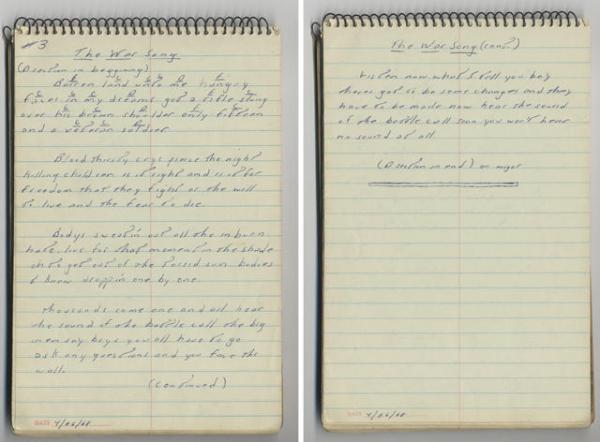 #3
The War Song
(D section in beggining)
Barren land unto me hungry
fires in my dreams got a rifle slung
over his brown shoulder only fifteen
and a veteran soldier.
Blood thirsty crys pierce the night
killing children is it right and is it for
freedom that they fight or the will
to live and the fear to die.
Bodys sweatin out all the inburn
hate, live for that moment in the shade
to get out of the sun bodies
droppin one by one.
thousands come one and all hear
the sound of the battle call the big
men say boys you all have to go
ask any questions and you face the
wall.
(continued)
DATE 4/06/68
The War Song (cont.)
Listen now what I tell you boy
theres got to be some changes and they
have to be made now hear the sound
of the battle call soon you won't hear
no sound at all.
(D section in end)
DATE 4/06/68